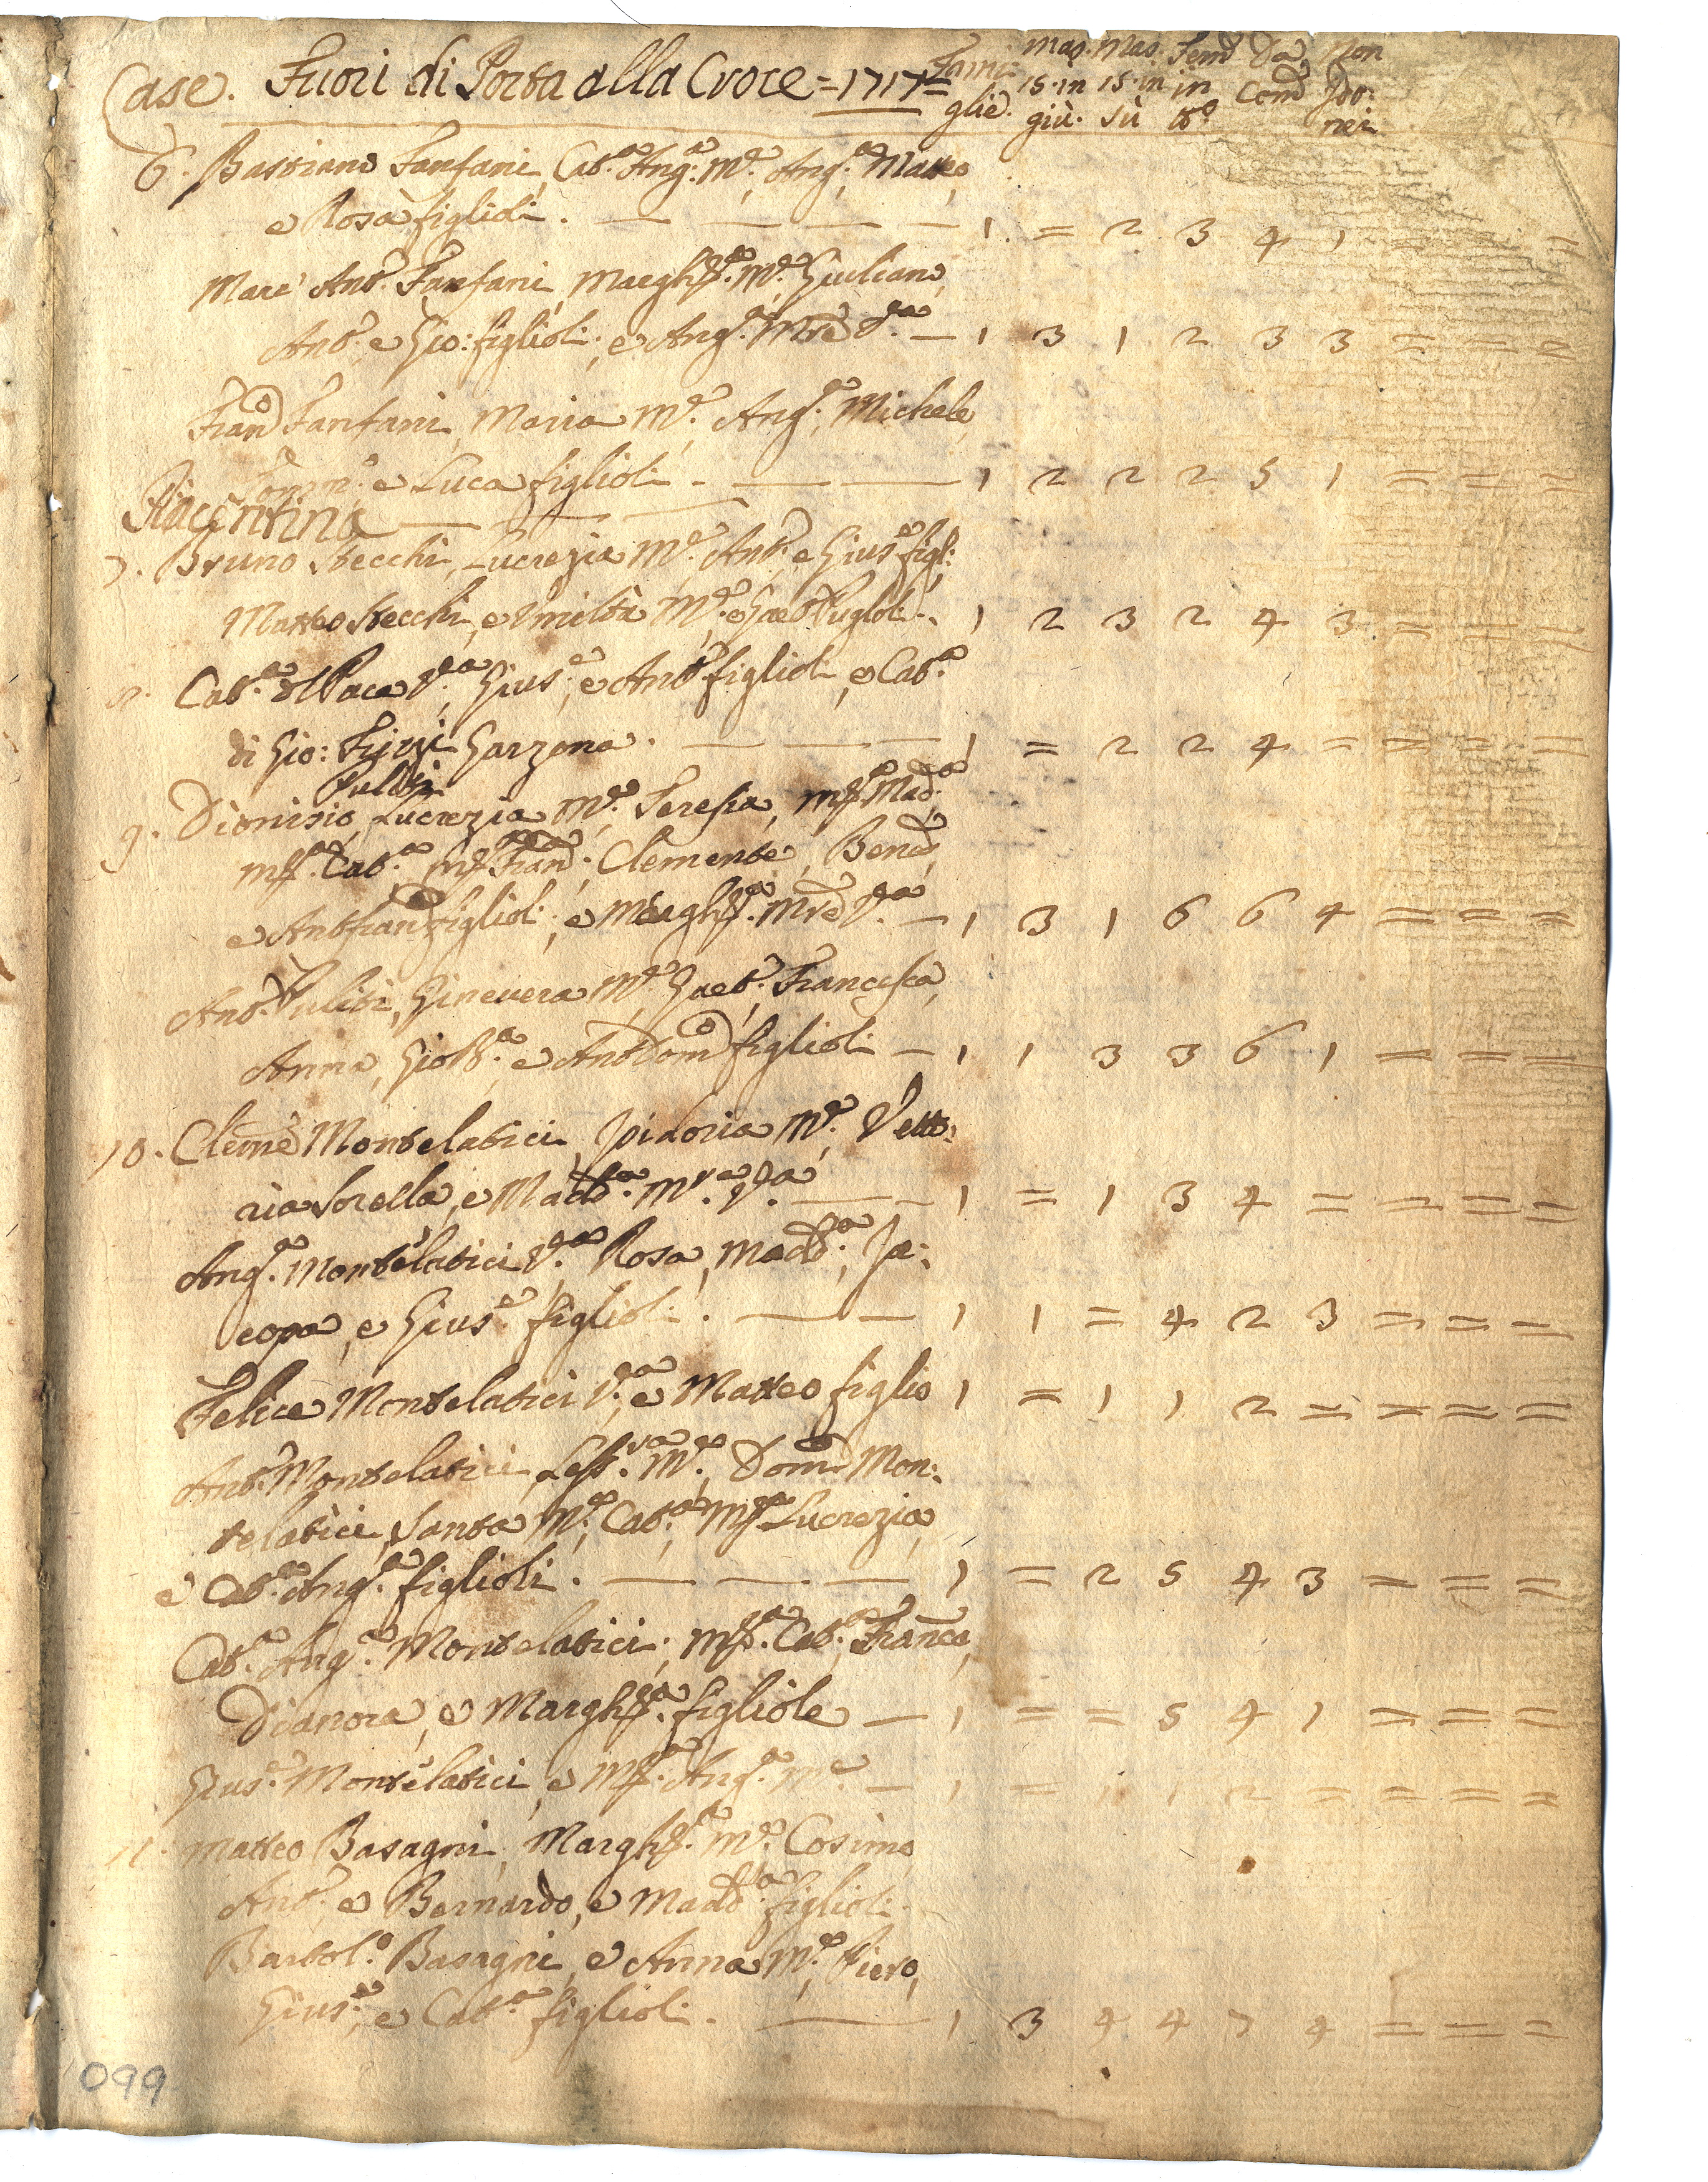 Case. Fuori di Porta alla Croce = 1717 = Fami: Mas. Mas. Fem̃ Da Non
glie. 15. in 15. in in Com̃ Ido:
giù. sù tt.º nei
6. Bastiano Fanfani, Cat.ª Ang.ª M.e, Ang.ª, Matteo,
e Rosa figlioli. — — — — 1. = 2 3 4 1 = = =
Marc' Ant.º Fanfani, Margh.ª M.e Giuliano,
Ant.º, e Gio: figlioli; e Ang.ª Mre V.ª — 1 3 1 2 3 3 = = =
Fran.º Fanfani, Maria M.e, Ang.ª, Michele,
Tomm.º e Luca figlioli. — — 1 2 2 2 5 1 = = =
Piacentina — — —
7. Bruno Stecchi, Lucrezia M.e, Ant.º, e Gius.e figl:
Matteo Stecchi, e Umiltà M.e, e Gaet.º figlioli. 1 2 3 2 4 3 = = =
8. Cat.ª del Pace V.ª, Gius.e, e Ant.º figlioli, e Cat.ª
di Gio: Garzona. — — — 1 = 2 2 4 = = = =
Puliti
9. Dionisio, Lucrezia M.e, Teresia, M.ª Mad.ª,
M.ª Cat.ª, M.ª Fran.ª; Clemente, Bened.º,
e Ant.º Fran.º figlioli; e Margh.ª Mre V.ª — 1 3 1 6 6 4 = = =
Ant.º Puliti, Ginevera M.e, Gaet.º, Francesca,
Anna, Gio B.ª, e Ant.º Dom.º figlioli — 1 1 3 3 6 1 = = =
10. Clem̃e Montelatici, Isidoria M.e, Vetto:
ria sorella, e Madd.ª M.re V.ª — — 1 = 1 3 4 = = = =
Ang.ª Montelatici V.ª, Rosa, Madd.ª, Ja:
copa, e Gius.e figlioli. — — 1 1 = 4 2 3 = = =
Felice Montelatici V.ª, e Matteo figlio 1 = 1 1 2 = = = =
Ant.º Montelatici, M.e, Dom.º Mon:
telatici, Santa M.e, Cat.ª, M.ª Lucrezia,
e Cat.ª Ang.ª figlioli. — — — 1 = 2 5 4 3 = = =
Cat.ª Ang.ª Montelatici; M.ª Cat.ª, Franc.ª,
Dianora, e Margh.ª figliole — 1 = = 5 4 1 = = =
Gius.e Montelatici, e M.ª Ang.ª M.e — 1 = 1 1 2 = = = =
11. Matteo Basagni, Margh.ª M.e, Cosimo
Ant.º, e Bernardo, e Madd.ª figlioli.
Bartol.º Basagni, e Anna M.e, Piero,
Gius.e, e Cat.ª figlioli. — 1 3 4 4 7 4 = = =
099